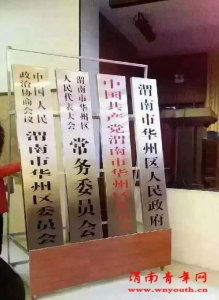 中国人民
政治协商会议
渭南市华州区委员会
渭南市华州区
人民代表大会
常务委员会
中国共产党渭南市华州区
渭南市华州区人民政府
渭南青年网
www.wnyouth.cn